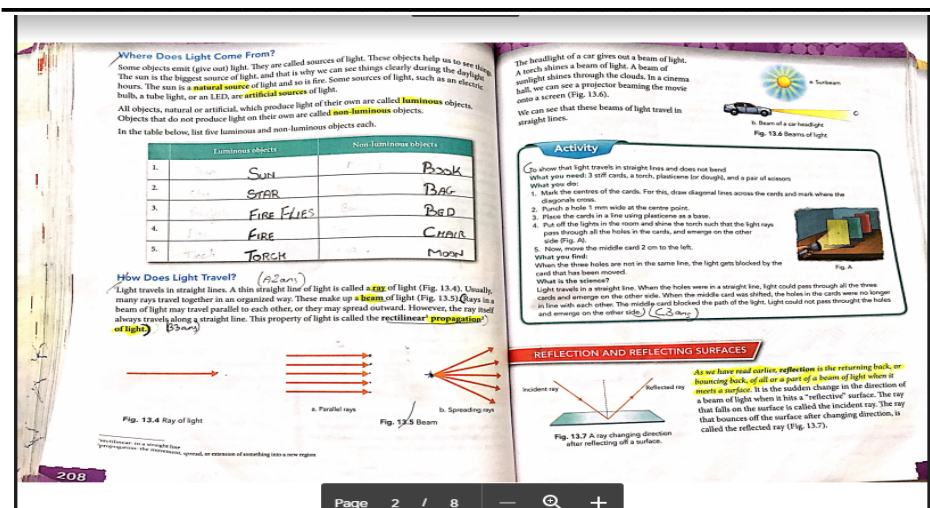 Where Does Light Come From?
Some objects emit (give out) light. They are called sources of light. These objects help us to see things.
The sun is the biggest source of light, and that is why we can see things clearly during the daylight
hours. The sun is a natural source of light and so is fire. Some sources of light, such as an electric
bulb, a tube light, or an LED, are artificial sources of light.
All objects, natural or artificial, which produce light of their own are called luminous objects.
Objects that do not produce light on their own are called non-luminous objects.
In the table below, list five luminous and non-luminous objects each.
Luminous objects Non-luminous objects
1. SUN BOOK
2. STAR BAG
3. FIRE FLIES BED
4. FIRE CHAIR
5. TORCH MOON
How Does Light Travel? (A2ans)
Light travels in straight lines. A thin straight line of light is called a ray of light (Fig. 13.4). Usually,
many rays travel together in an organized way. These make up a beam of light (Fig. 13.5). Rays in a
beam of light may travel parallel to each other, or they may spread outward. However, the ray itself
always travels along a straight line. This property of light is called the rectilinear¹ propagation²
of light. B3ans
a. Parallel rays b. Spreading rays
Fig. 13.4 Ray of light Fig. 13.5 Beam
¹rectilinear: in a straight line
²propagation: the movement, spread, or extension of something into a new region
208
The headlight of a car gives out a beam of light.
A torch shines a beam of light. A beam of
sunlight shines through the clouds. In a cinema
hall, we can see a projector beaming the movie
onto a screen (Fig. 13.6).
We can see that these beams of light travel in
straight lines.
a. Sunbeam
b. Beam of a car headlight
Fig. 13.6 Beams of light
Activity
To show that light travels in straight lines and does not bend
What you need: 3 stiff cards, a torch, plasticene (or dough), and a pair of scissors
What you do:
1. Mark the centres of the cards. For this, draw diagonal lines across the cards and mark where the
diagonals cross.
2. Punch a hole 1 mm wide at the centre point.
3. Place the cards in a line using plasticene as a base.
4. Put off the lights in the room and shine the torch such that the light rays
pass through all the holes in the cards, and emerge on the other
side (Fig. A).
5. Now, move the middle card 2 cm to the left.
What you find:
When the three holes are not in the same line, the light gets blocked by the
card that has been moved.
Fig. A
What is the science?
Light travels in a straight line. When the holes were in a straight line, light could pass through all the three
cards and emerge on the other side. When the middle card was shifted, the holes in the cards were no longer
in line with each other. The middle card blocked the path of the light. Light could not pass throught the holes
and emerge on the other side. (C3ans)
REFLECTION AND REFLECTING SURFACES
Incident ray Reflected ray
Fig. 13.7 A ray changing direction
after reflecting off a surface.
As we have read earlier, reflection is the returning back, or
bouncing back, of all or a part of a beam of light when it
meets a surface. It is the sudden change in the direction of
a beam of light when it hits a "reflective" surface. The ray
that falls on the surface is called the incident ray. The ray
that bounces off the surface after changing direction, is
called the reflected ray (Fig. 13.7).
Page 2 / 8